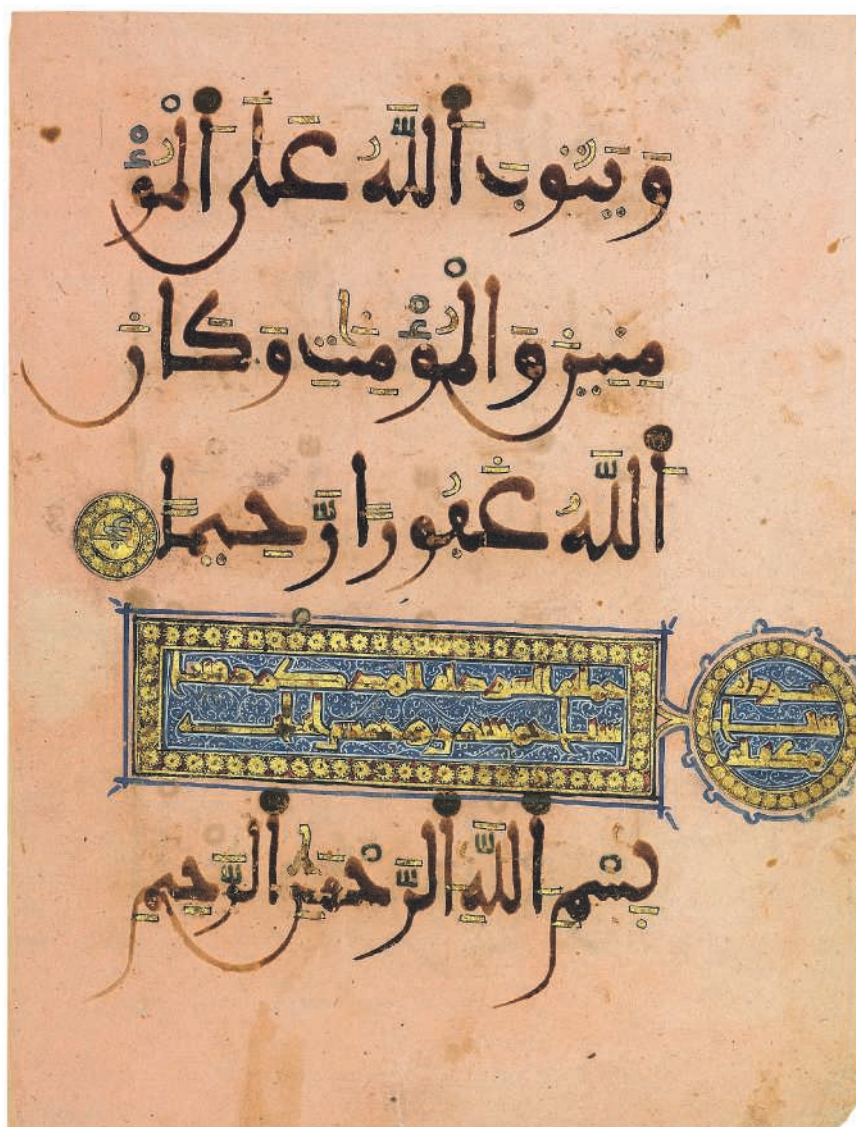 وَيَتُوبَ ٱللَّهُ عَلَى ٱلْمُؤْ
مِنِينَ وَالْمُؤْمِنَٰتِ وَكَانَ
ٱللَّهُ غَفُورًا رَّحِيمًا
سورة
سبا
مكية
بِسْمِ ٱللَّهِ ٱلرَّحْمَٰنِ ٱلرَّحِيمِ